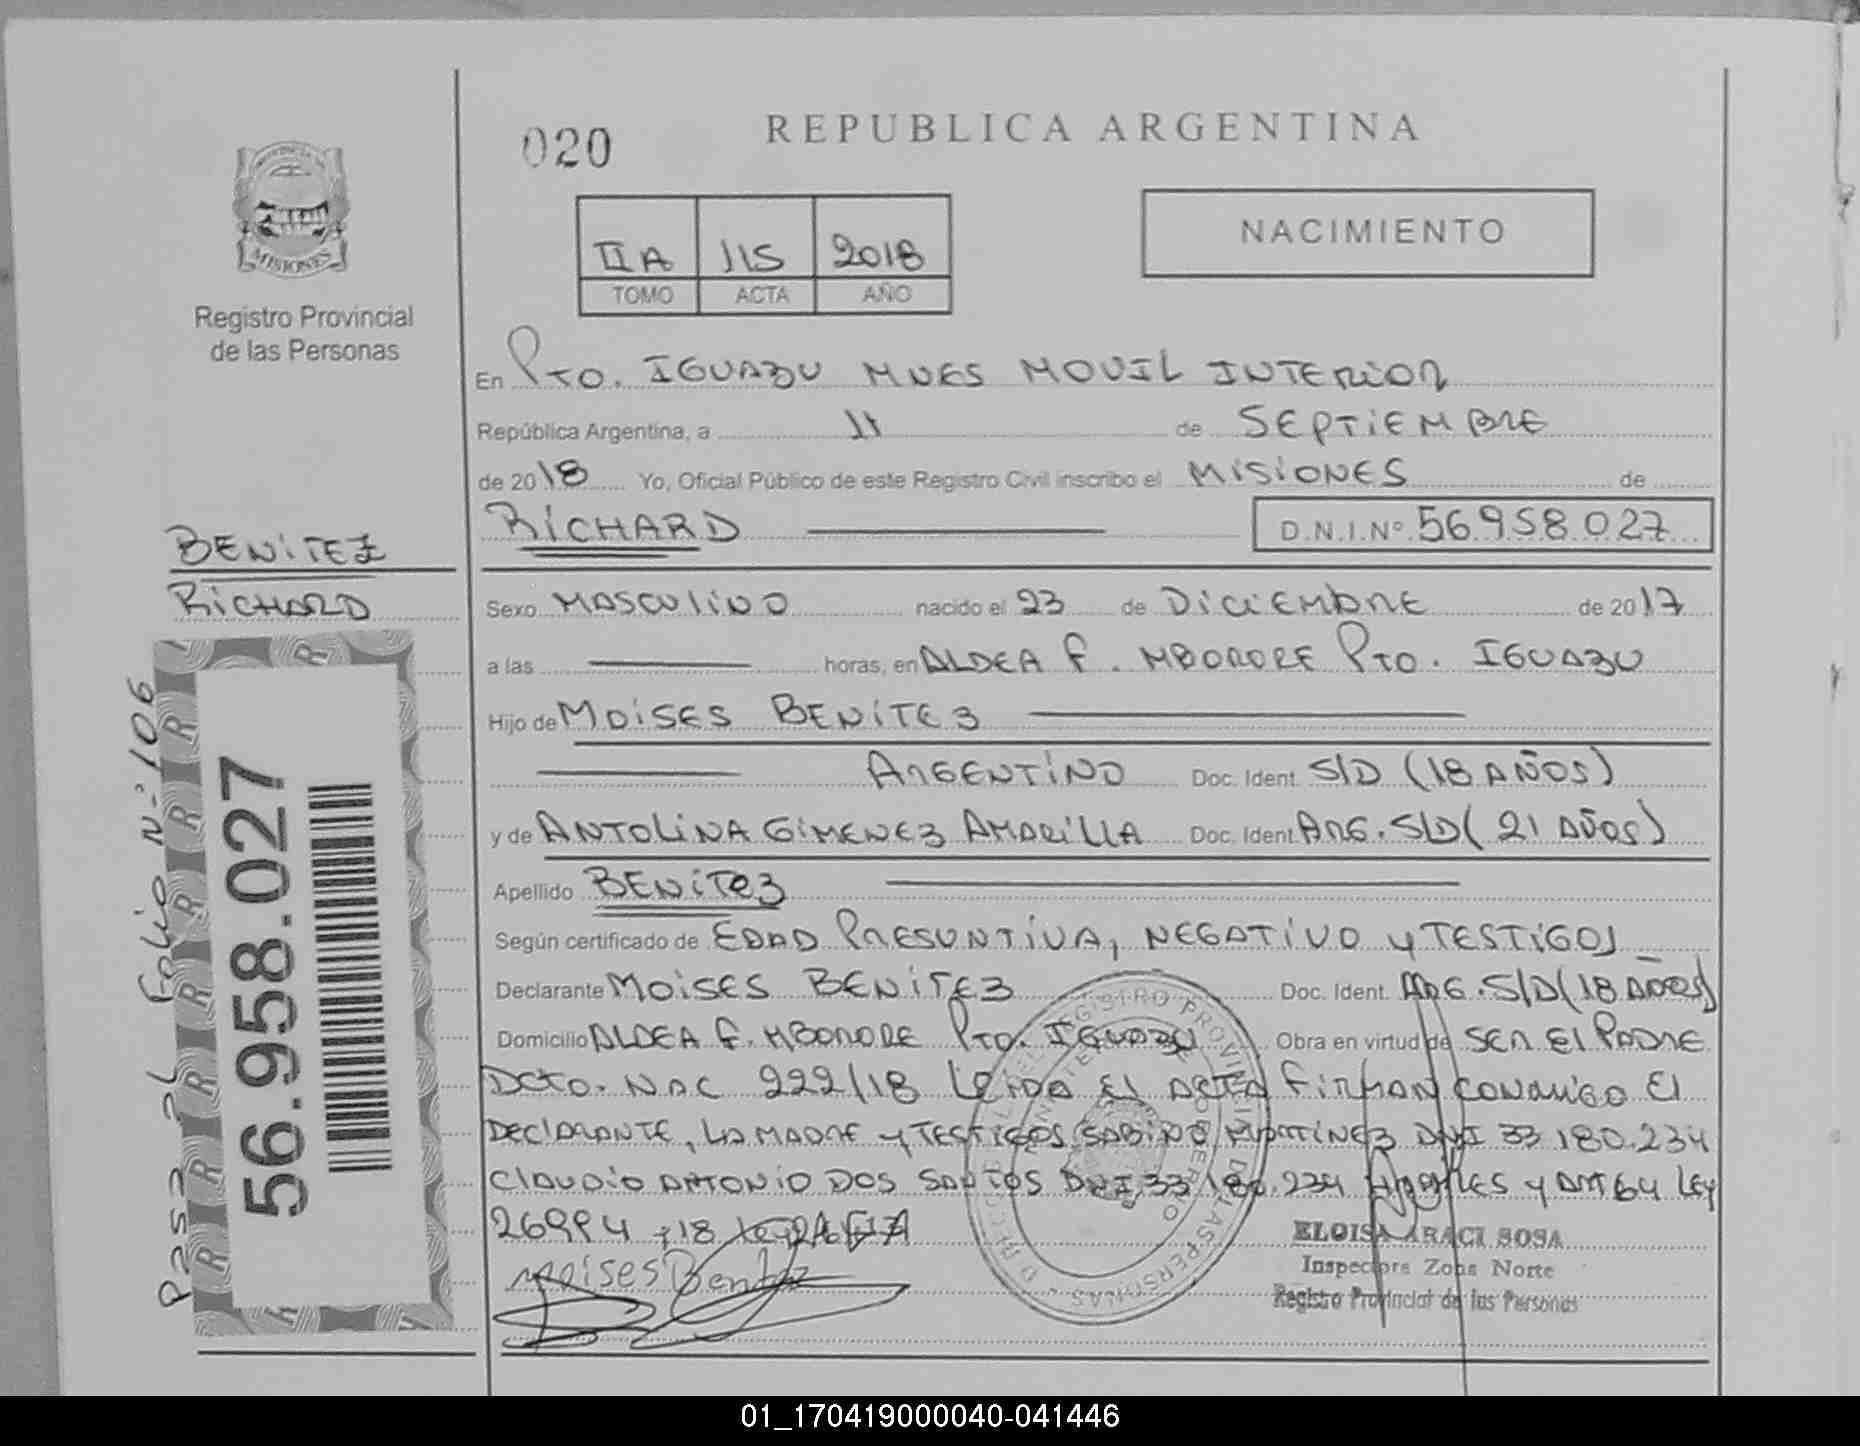 020
REPUBLICA ARGENTINA
MISIONES
Registro Provincial
de las Personas
IIA 115 2018
TOMO ACTA AÑO
NACIMIENTO
En Pto. IGUAZU MNES MOVIL INTERIOR
República Argentina, a 11 de SEPTIEMBRE
de 2018 Yo, Oficial Público de este Registro Civil inscribo el MISIONES de
RICHARD D.N.I.Nº 56958.027
BENITEZ
RICHARD
Sexo MASCULINO nacido el 23 de DICIEMBRE de 2017
a las horas, en ALDEA F. MBORORE Pto. IGUAZU
Hijo de MOISES BENITEZ
ARGENTINO Doc. Ident. S/D (18 AÑOS)
y de ANTOLINA GIMENEZ AMARILLA Doc. Ident. ARG. S/D (21 AÑOS)
Apellido BENITEZ
Según certificado de EDAD PRESUNTIVA, NEGATIVO y TESTIGOS
Declarante MOISES BENITEZ Doc. Ident. ARG. S/D (18 AÑOS)
Domicilio ALDEA F. MBORORE Pto. IGUAZU Obra en virtud de SER El PADRE
DCTO. NAC 222/18 LEIDA El ACTA FIRMAN CONMIGO El
DECLARANTE, LA MADRE y TESTIGOS SABINO MARTINEZ DNI 33 180.234
CLAUDIO ANTONIO DOS SANTOS DNI 33 180.234 y ART 64 LEY
26994
Moises Benitez
ELOISA ARACI SOSA
Inspectora Zona Norte
Registro Provincial de las Personas
Pasa al Folio Nº 106
56.958.027
01_170419000040-041446